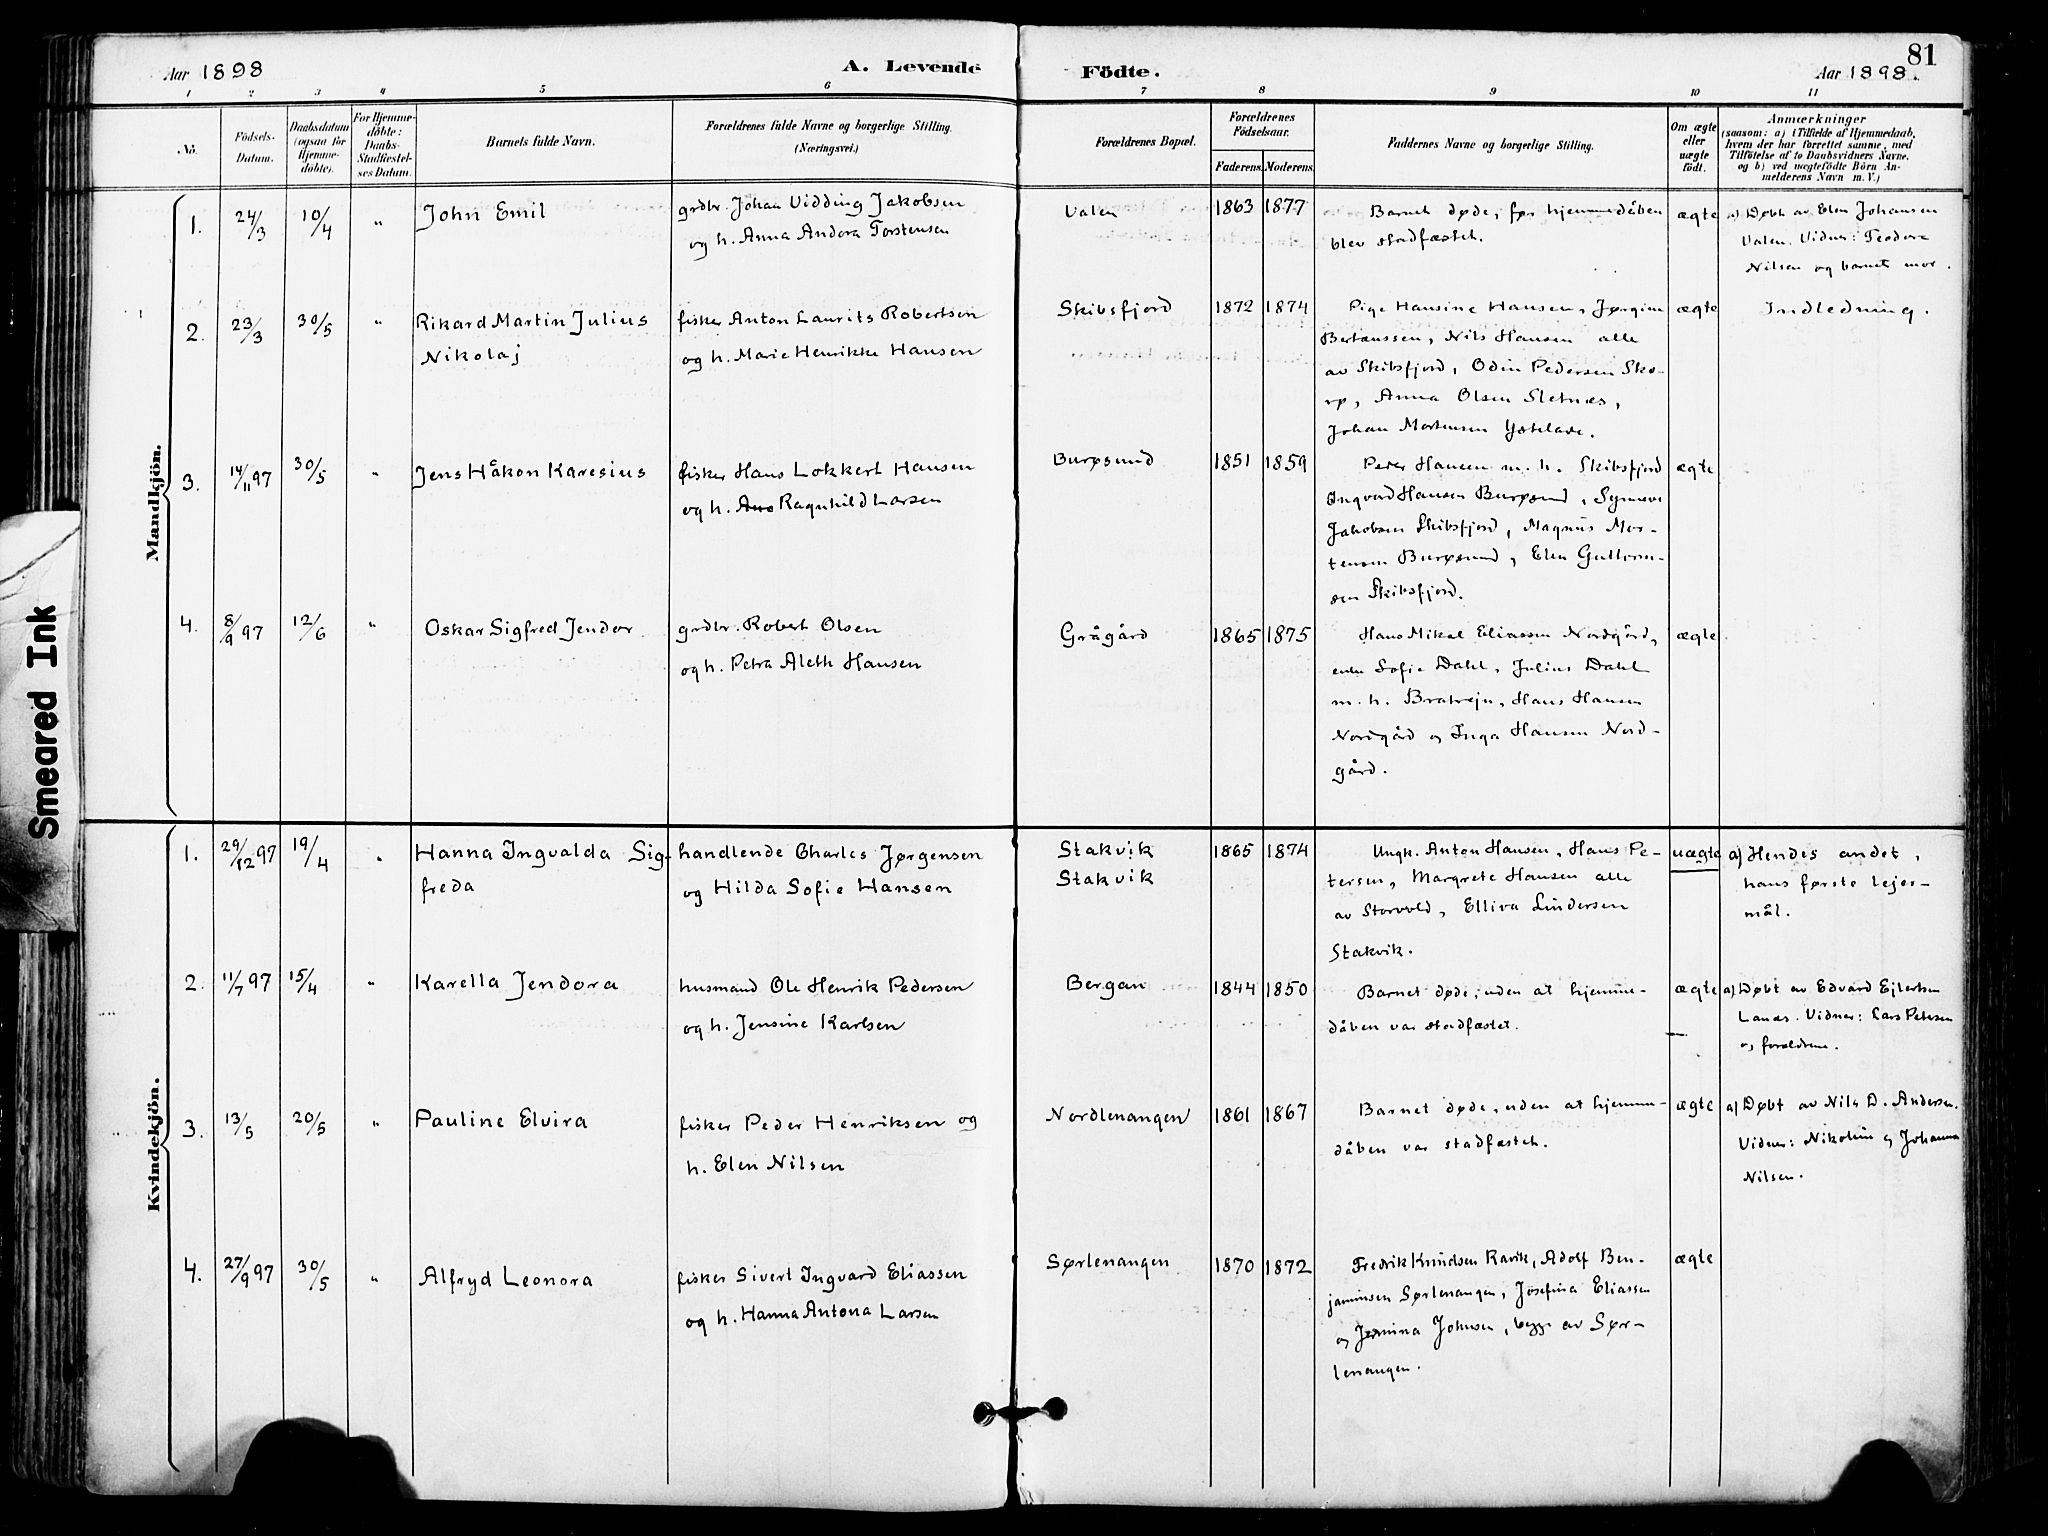 81
Aar 1898 A. Levende Födte. Aar 1898.
1 2 3 4 5 6 7 8 9 10 11
No.
Födsels-
Datum.
Daabsdatum
(ogsaa for
Hjemme-
döbte).
For Hjemme-
döbte:
Daabs-
Stadfæstel-
ses Datum.
Barnets fulde Navn.
Forældrenes fulde Navne og borgerlige Stilling.
(Næringsvei.)
Forældrenes Bopæl.
Forældrenes
Födselsaar.
Faderens. Moderens.
Faddernes Navne og borgerlige Stilling.
Om ægte
eller
uægte
födt.
Anmærkninger
(saasom: a) i Tilfælde af Hjemmedaab,
hvem der har forrettet samme, med
Tilföielse af to Daabsvidners Navne,
og b) ved uægtefödte Börn An-
melderens Navn m. V.)
Smeared Ink
Mandkjön.
1. 24/3 10/4 " John Emil
grdbr. Johan Vidding Jakobsen
og h. Anna Andora Torstensen
Valen 1863 1877
Barnet døde, før hjemmedåben
blev stadfæstet.
ægte
a) Døbt av Elen Johansen
Valen. Vidner: Teodora
Nilsen og barnets mor.
2. 23/3 30/5 " Rikard Martin Julius
Nikolaj
fisker Anton Laurits Robertsen
og h. Marie Henrikke Hansen
Skibsfjord 1872 1874
Pige Hansine Hansen, Jørgine
Bertæussen, Nils Hansen alle
av Skibsfjord, Odin Pedersen Sko-
rø, Anna Olsen Sletnæs,
Johan Mortensen
ægte
Indledning.
3. 14/11 97 30/5 " Jens Håkon Karesius
fisker Hans Lokkert Hansen
og h. Ane Ragnhild Larsen
Burøsund 1851 1859
Peder Hansen m. h. Skibsfjord
Ingvard Hansen Burøsund, Synnøve
Jakobsen Skibsfjord, Magnus Mor-
tensen Burøsund, Elen Guttorm-
sen Skibsfjord.
ægte
4. 8/9 97 12/6 " Oskar Sigfred Jendor
grdbr. Robert Olsen
og h. Petra Aleth Hansen
Grågård 1865 1875
Hans Mikal Eliassen Nordgård,
enke Sofie Dahl, Julius Dahl
m. h. Bratrejn, Hans Hansen
Nordgård og Inga Hansen Nord-
gård.
ægte
Kvindekjön.
1. 29/12 97 19/4 " Hanna Ingvalda Sig-
freda
handlende Charles Jørgensen
og Hilda Sofie Hansen
Stakvik
Stakvik
1865 1874
Ungk. Anton Hansen, Hans Pe-
tersen, Margrete Hansen alle
av Storvold, Elliva Lindersen
Stakvik.
uægte
a) Hendes andet,
hans første lejer-
mål.
2. 11/7 97 15/4 " Karella Jendora
husmand Ole Henrik Pedersen
og h. Jensine Karlsen
Bergan 1844 1850
Barnet døde, uden at hjemme-
dåben var stadfæstet.
ægte
a) Døbt av Edvard Ejlertsen
Lanæs. Vidner: Lars Petersen
og forældrene.
3. 13/5 20/5 " Pauline Elvira
fisker Peder Henriksen og
h. Elen Nilsen
Nordlenangen 1861 1867
Barnet døde, uden at hjemme-
dåben var stadfæstet.
ægte
a) Døbt av Nils D. Andersen.
Vidner: Nikoline og Johanna
Nilsen.
4. 27/9 97 30/5 " Alfryd Leonora
fisker Sivert Ingvard Eliassen
og h. Hanna Antona Larsen
Sørlenangen 1870 1872
Fredrik Knudsen Ravik, Adolf Ben-
jaminsen Sørlenangen, Josefina Eliassen
og Jermina Johnsen, begge av Sør-
lenangen.
ægte